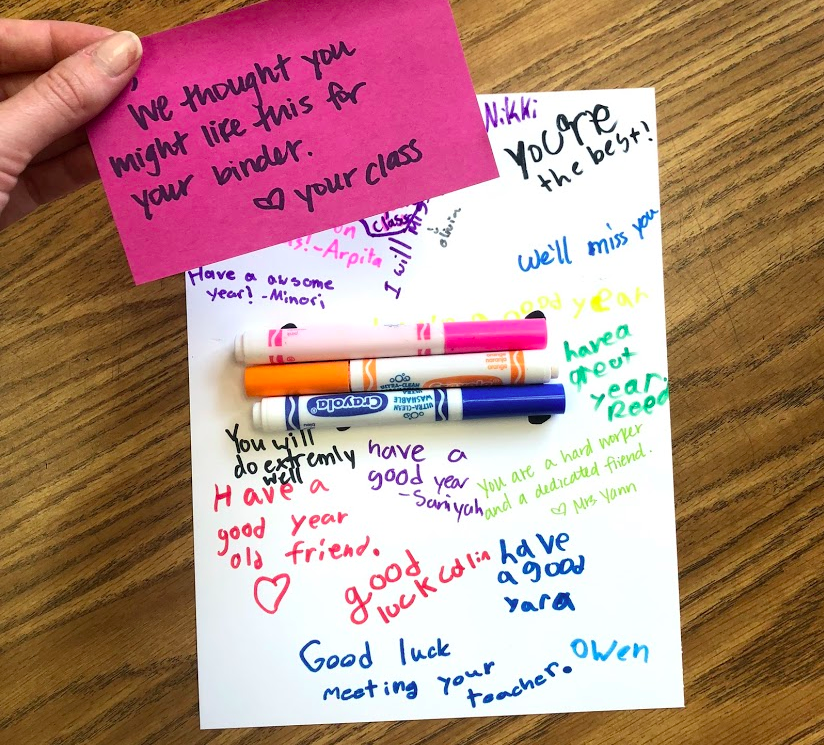 We thought you
might like this for
your binder.
♡ your class
Nikki
you are
the best!
class
on
I will
olivia
s! -Arpita
We'll miss you
Have a awsome
year! -Minori
good year
have a
great
year.
Reed
Crayola
ULTRA-CLEAN
WASHABLE
You will
do extremly
well
have a
good year
-Saniyah
You are a hard worker
and a dedicated friend.
♡ Mrs Yann
Have a
good year
old friend.
good
luck Catlin
have
a good
yara
Good luck
meeting your
teacher.
Owen